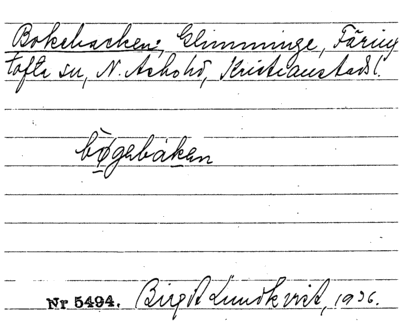 Boksbacken, Glimminge, Färing
tofta sn, N. Åsbohd, Kristianstads l.
bǿgebáken
Nr 5494. Birgit Lundkvist, 1936.